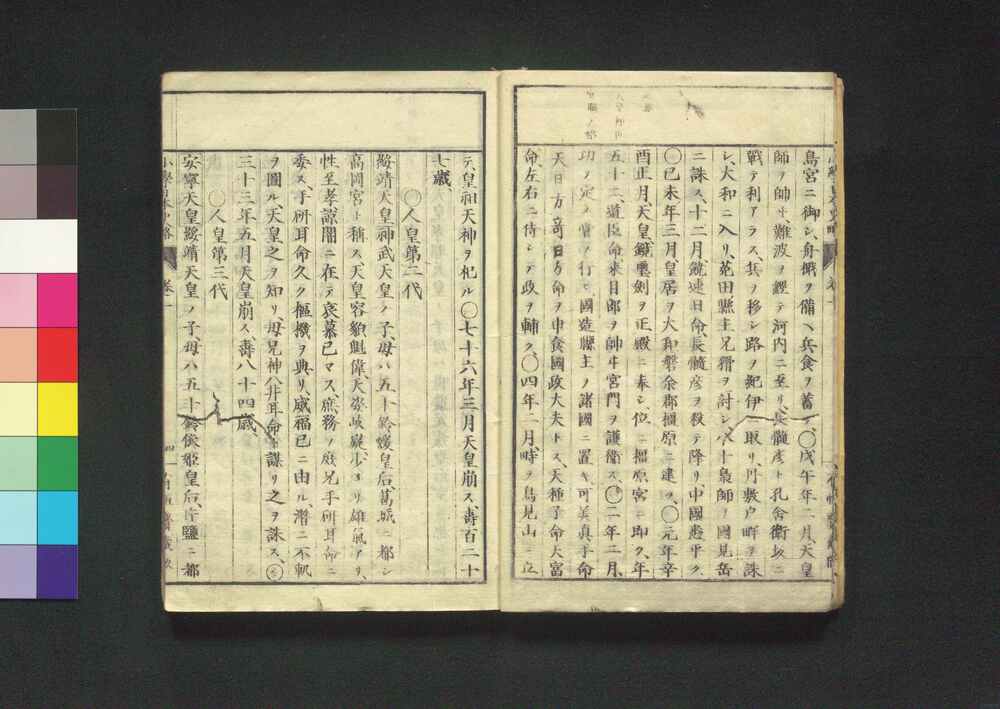 島宮ニ御シ、舟檝ヲ備ヘ兵食ヲ蓄フ、〇戊午年二月、天皇
師ヲ帥ヰ難波ヲ經テ河内ニ至リ、長髄彦ト孔舎衛坂ニ
戰テ利アラス、兵ヲ移シ路ヲ紀伊ニ取リ、丹敷戸畔ヲ誅
シ、大和ニ入リ、菟田縣主兄猾ヲ討シ、八十梟師ヲ國見岳
ニ誅ス、十二月、饒速日命、長髄彦ヲ殺テ降リ、中國悉平ク、
〇己未年三月、皇居ヲ大和磐余郡橿原ニ建ツ、〇元年辛
酉正月、天皇鏡璽劍ヲ正殿ニ奉シ、位ニ橿原宮ニ即ク、年
五十二、道臣命來目部ヲ帥ヰ宮門ヲ護衛ス、〇二年二月、
功ヲ定メ賞ヲ行ヒ國造縣主ノ諸國ニ置キ、可美眞手命
天日方奇日方命ヲ申食國政大夫トス、天種子命天富
命、左右ニ侍シテ政ヲ輔ク、〇四年二月、畤ヲ鳥見山ニ立
テ、皇祖天神ヲ祀ル〇七十六年三月天皇崩ス、壽百二十
七歳、
〇人皇第二代
綏靖天皇神武天皇ノ子、母ハ五十鈴媛皇后、葛城ニ都シ
高岡宮ト稱ス、天皇容貌魁偉、天姿岐嶷、少ヨリ雄氣アリ、
性至孝諒闇ニ在テ哀慕已マス、庶務ヲ庶兄手研耳命ニ
委ス、手研耳命久ク樞機ヲ典リ、威福己ニ由ル、潜ニ不軌
ヲ圖ル、天皇之ヲ知リ母兄神八井耳命ト謀リ之ヲ誅ス、〇
三十三年五月天皇崩ス、壽八十四歳、
〇人皇第三代
安寧天皇綏靖天皇ノ子、母ハ五十鈴依姫皇后、片鹽ニ都
小學日本史略 卷一 四